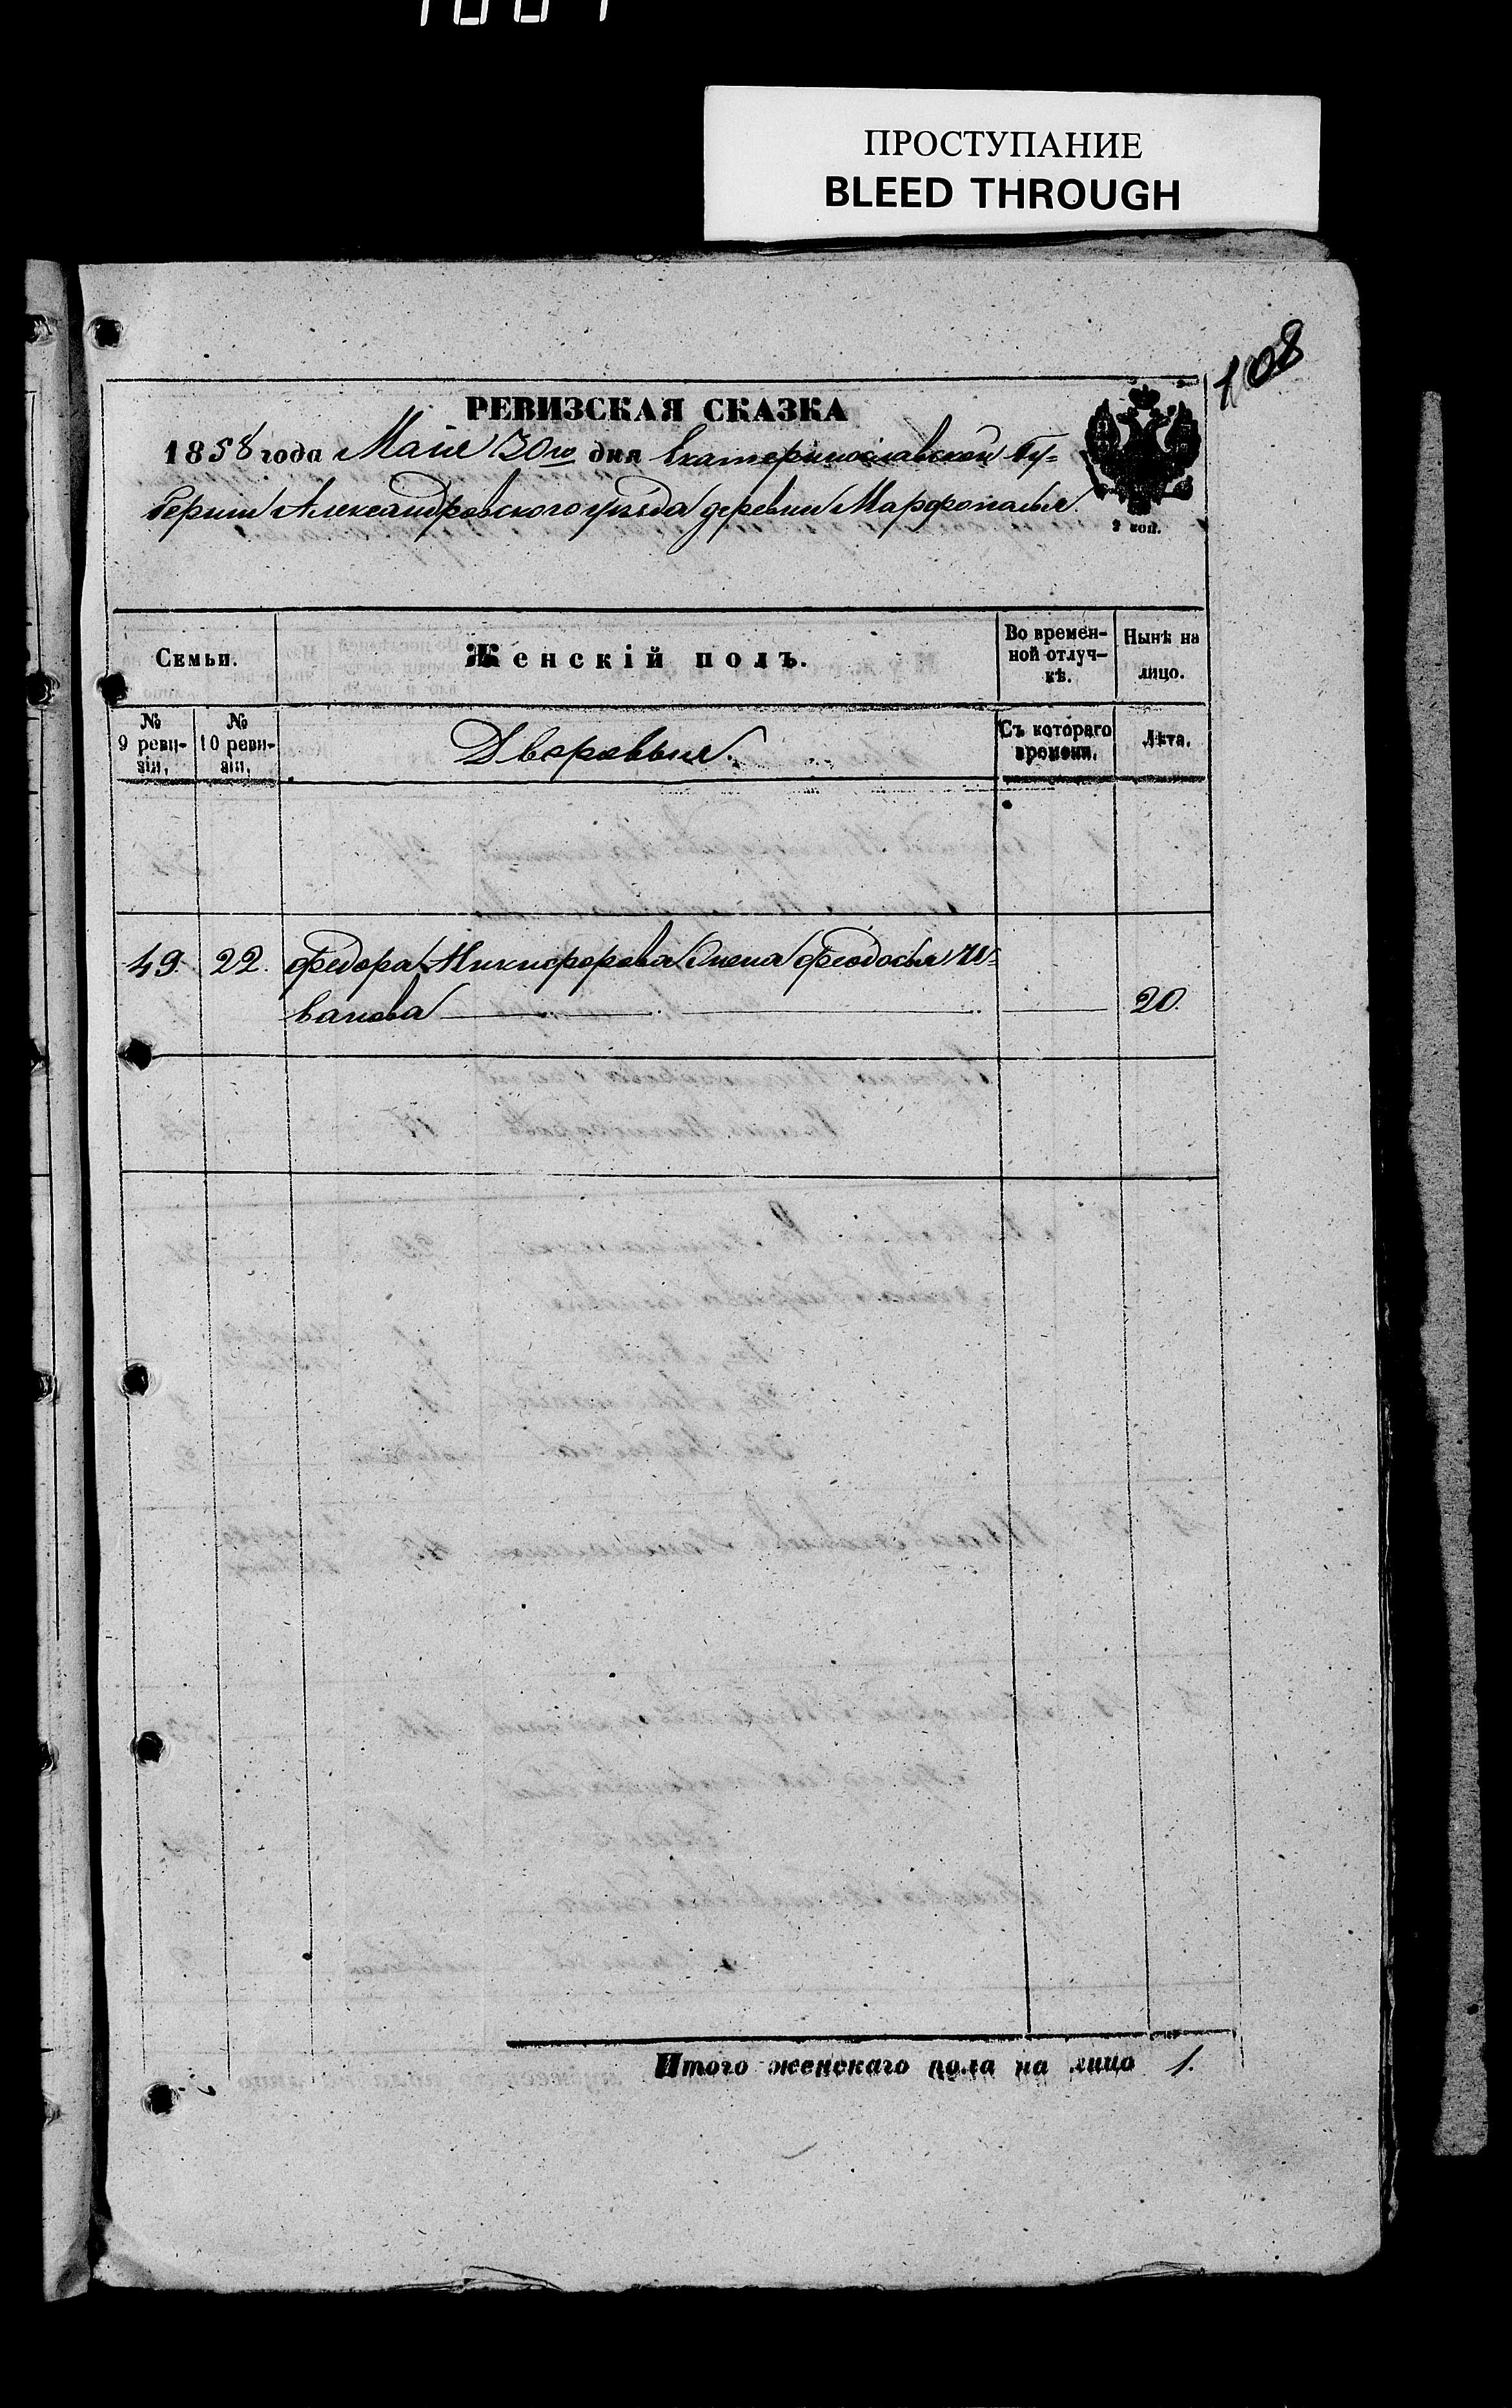 ПРОСТУПАНИЕ
BLEED THROUGH
108
РЕВИЗСКАЯ СКАЗКА
1858 года Мая 30го дня Екатеринославской Гу=
берни Александровского уезда деревни Марфополья
2 коп.
Семьи.
Женскій полъ.
Во времен-
ной отлуч-
кѣ.
Нынѣ на
лицо.
№
9 реви-
зіи.
№
10 реви-
зіи.
Дворовыя.
Съ котораго
времени.
Лѣта.
49. 22. Федора Никифорова жена Феодосья И=
ванова 20.
Итого женскаго пола на лицо 1.